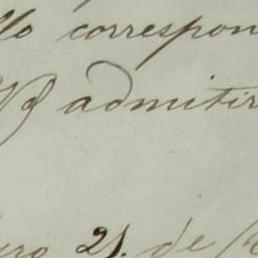 llo correspon
admitir
ero 21. de